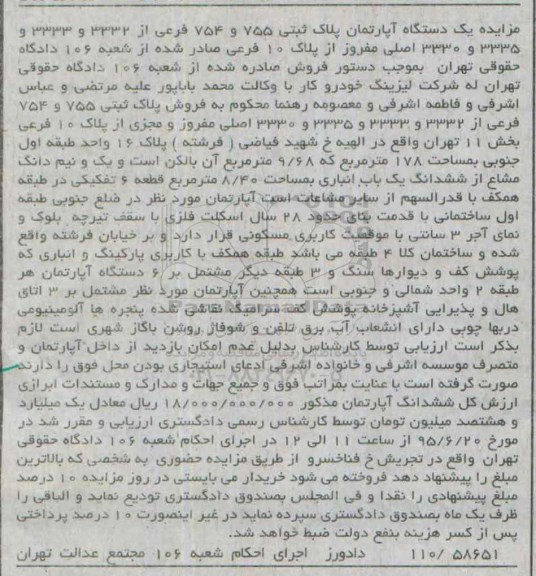 مزایده یک دستگاه آپارتمان پلاک ثبتی ۷۵۵ و ۷۵۴ فرعی از ۳۳۳۲ و ۳۳۳۳ و
۳۳۳۵ و ۳۳۳۰ اصلی مفروز از پلاک ۱۰ فرعی صادر شده از شعبه ۱۰۶ دادگاه
حقوقی تهران بموجب دستور فروش صادره شده از شعبه ۱۰۶ دادگاه حقوقی
تهران له شرکت لیزینگ خودرو کار با وکالت محمد باباپور علیه مرتضی و عباس
اشرفی و فاطمه اشرفی و معصومه رهنما محکوم به فروش پلاک ثبتی ۷۵۵ و ۷۵۴
فرعی از ۳۳۳۲ و ۳۳۳۳ و ۳۳۳۵ و ۳۳۳۰ اصلی مفروز و مجزی از پلاک ۱۰ فرعی
بخش ۱۱ تهران واقع در الهیه خ شهید فیاضی ( فرشته ) پلاک ۱۶ واحد طبقه اول
جنوبی بمساحت ۱۷۸ مترمربع که ۹/۶۸ مترمربع آن بالکن است و یک و نیم دانگ
مشاع از ششدانگ یک باب انباری بمساحت ۸/۴۰ مترمربع قطعه ۶ تفکیکی در طبقه
همکف با قدرالسهم از سایر مشاعات است آپارتمان مورد نظر در ضلع جنوبی طبقه
اول ساختمانی با قدمت بنای حدود ۲۸ سال اسکلت فلزی با سقف تیرچه بلوک و
نمای آجر ۳ سانتی با موقعیت کاربری مسکونی قرار دارد و بر خیابان فرشته واقع
شده و ساختمان کلا ۴ طبقه می باشد طبقه همکف با کاربری پارکینگ و انباری که
پوشش کف و دیوارها سنگ و ۳ طبقه دیگر مشتمل بر ۶ دستگاه آپارتمان هر
طبقه ۲ واحد شمالی و جنوبی است همچنین آپارتمان مورد نظر مشتمل بر ۳ اتاق
هال و پذیرایی آشپزخانه پوشش کف سرامیک نقاشی شده پنجره ها آلومینیومی
دربها چوبی دارای انشعاب آب برق تلفن و شوفاژ روشن باگاز شهری است لازم
بذکر است ارزیابی توسط کارشناس بدلیل عدم امکان بازدید از داخل آپارتمان و
متصرف موسسه اشرفی و خانواده اشرفی ادعای استیجاری بودن محل فوق را دارند
صورت گرفته است با عنایت بمراتب فوق و جمیع جهات و مدارک و مستندات ابرازی
ارزش کل ششدانگ آپارتمان مذکور ۱۸/۰۰۰/۰۰۰/۰۰۰ ریال معادل یک میلیارد
و هشتصد میلیون تومان توسط کارشناس رسمی دادگستری ارزیابی و مقرر شد در
مورخ ۹۵/۶/۲۰ از ساعت ۱۱ الی ۱۲ در اجرای احکام شعبه ۱۰۶ دادگاه حقوقی
تهران واقع در تجریش خ فناخسرو از طریق مزایده حضوری به شخصی که بالاترین
مبلغ را پیشنهاد دهد فروخته می شود خریدار می بایستی در روز مزایده ۱۰ درصد
مبلغ پیشنهادی را نقدا و فی المجلس بصندوق دادگستری تودیع نماید و الباقی را
ظرف یک ماه بصندوق دادگستری سپرده نماید در غیر اینصورت ۱۰ درصد پرداختی
پس از کسر هزینه بنفع دولت ضبط خواهد شد.
۱۱۰/ ۵۸۶۵۱ دادورز اجرای احکام شعبه ۱۰۶ مجتمع عدالت تهران